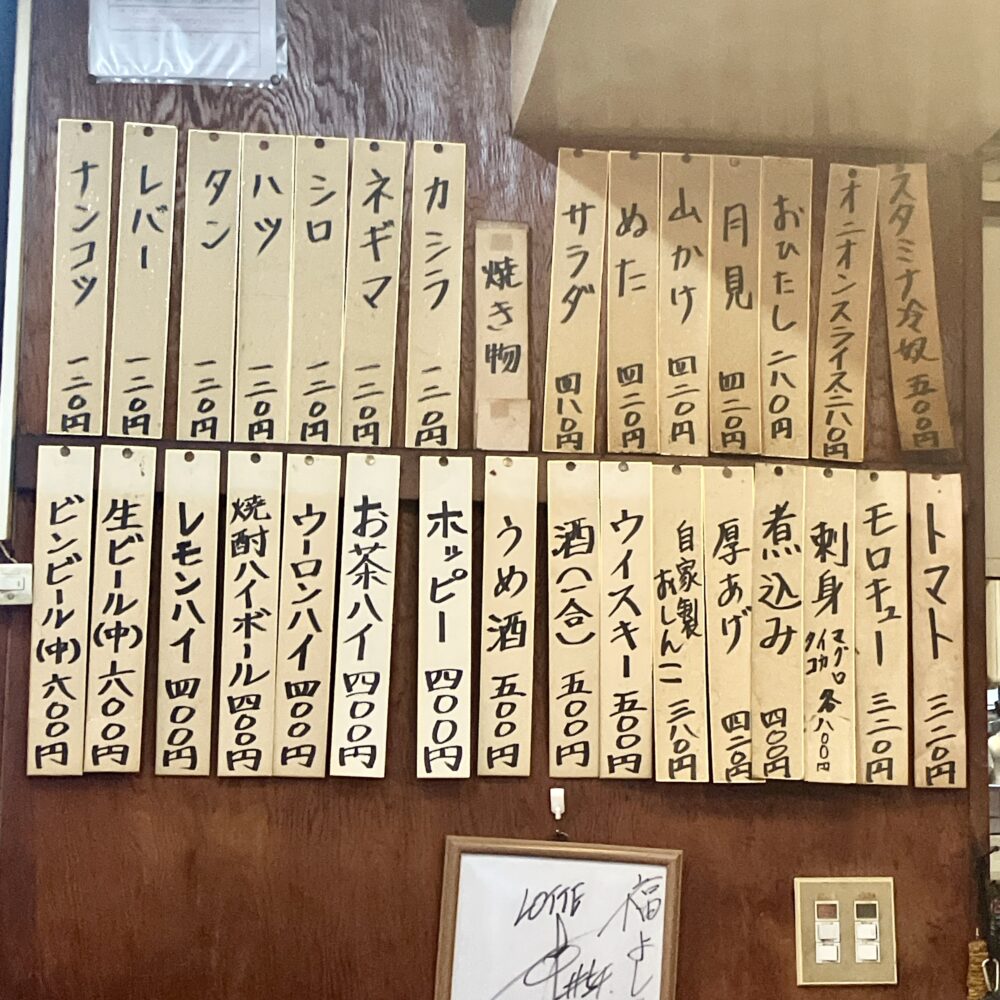 スタミナ冷奴 五〇〇円
オニオンスライス 二八〇円
おひたし 二八〇円
月見 四二〇円
山かけ 四二〇円
ぬた 四二〇円
サラダ 四八〇円
焼き物
カシラ 一二〇円
ネギマ 一二〇円
シロ 一二〇円
ハツ 一二〇円
タン 一二〇円
レバー 一二〇円
ナンコツ 一二〇円
トマト 三二〇円
モロキュー 三二〇円
刺身 マグロ イカ タコ 各八〇〇円
煮込み 四〇〇円
厚あげ 四二〇円
自家製おしんこ 三八〇円
ウイスキー 五〇〇円
酒(一合) 五〇〇円
うめ酒 五〇〇円
ホッピー 四〇〇円
お茶ハイ 四〇〇円
ウーロンハイ 四〇〇円
焼酎ハイボール 四〇〇円
レモンハイ 四〇〇円
生ビール(中) 六〇〇円
ビンビール(中) 六〇〇円
福よし
LOTTE